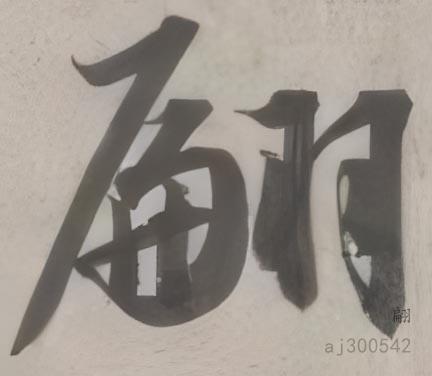 翩
翩
aj300542